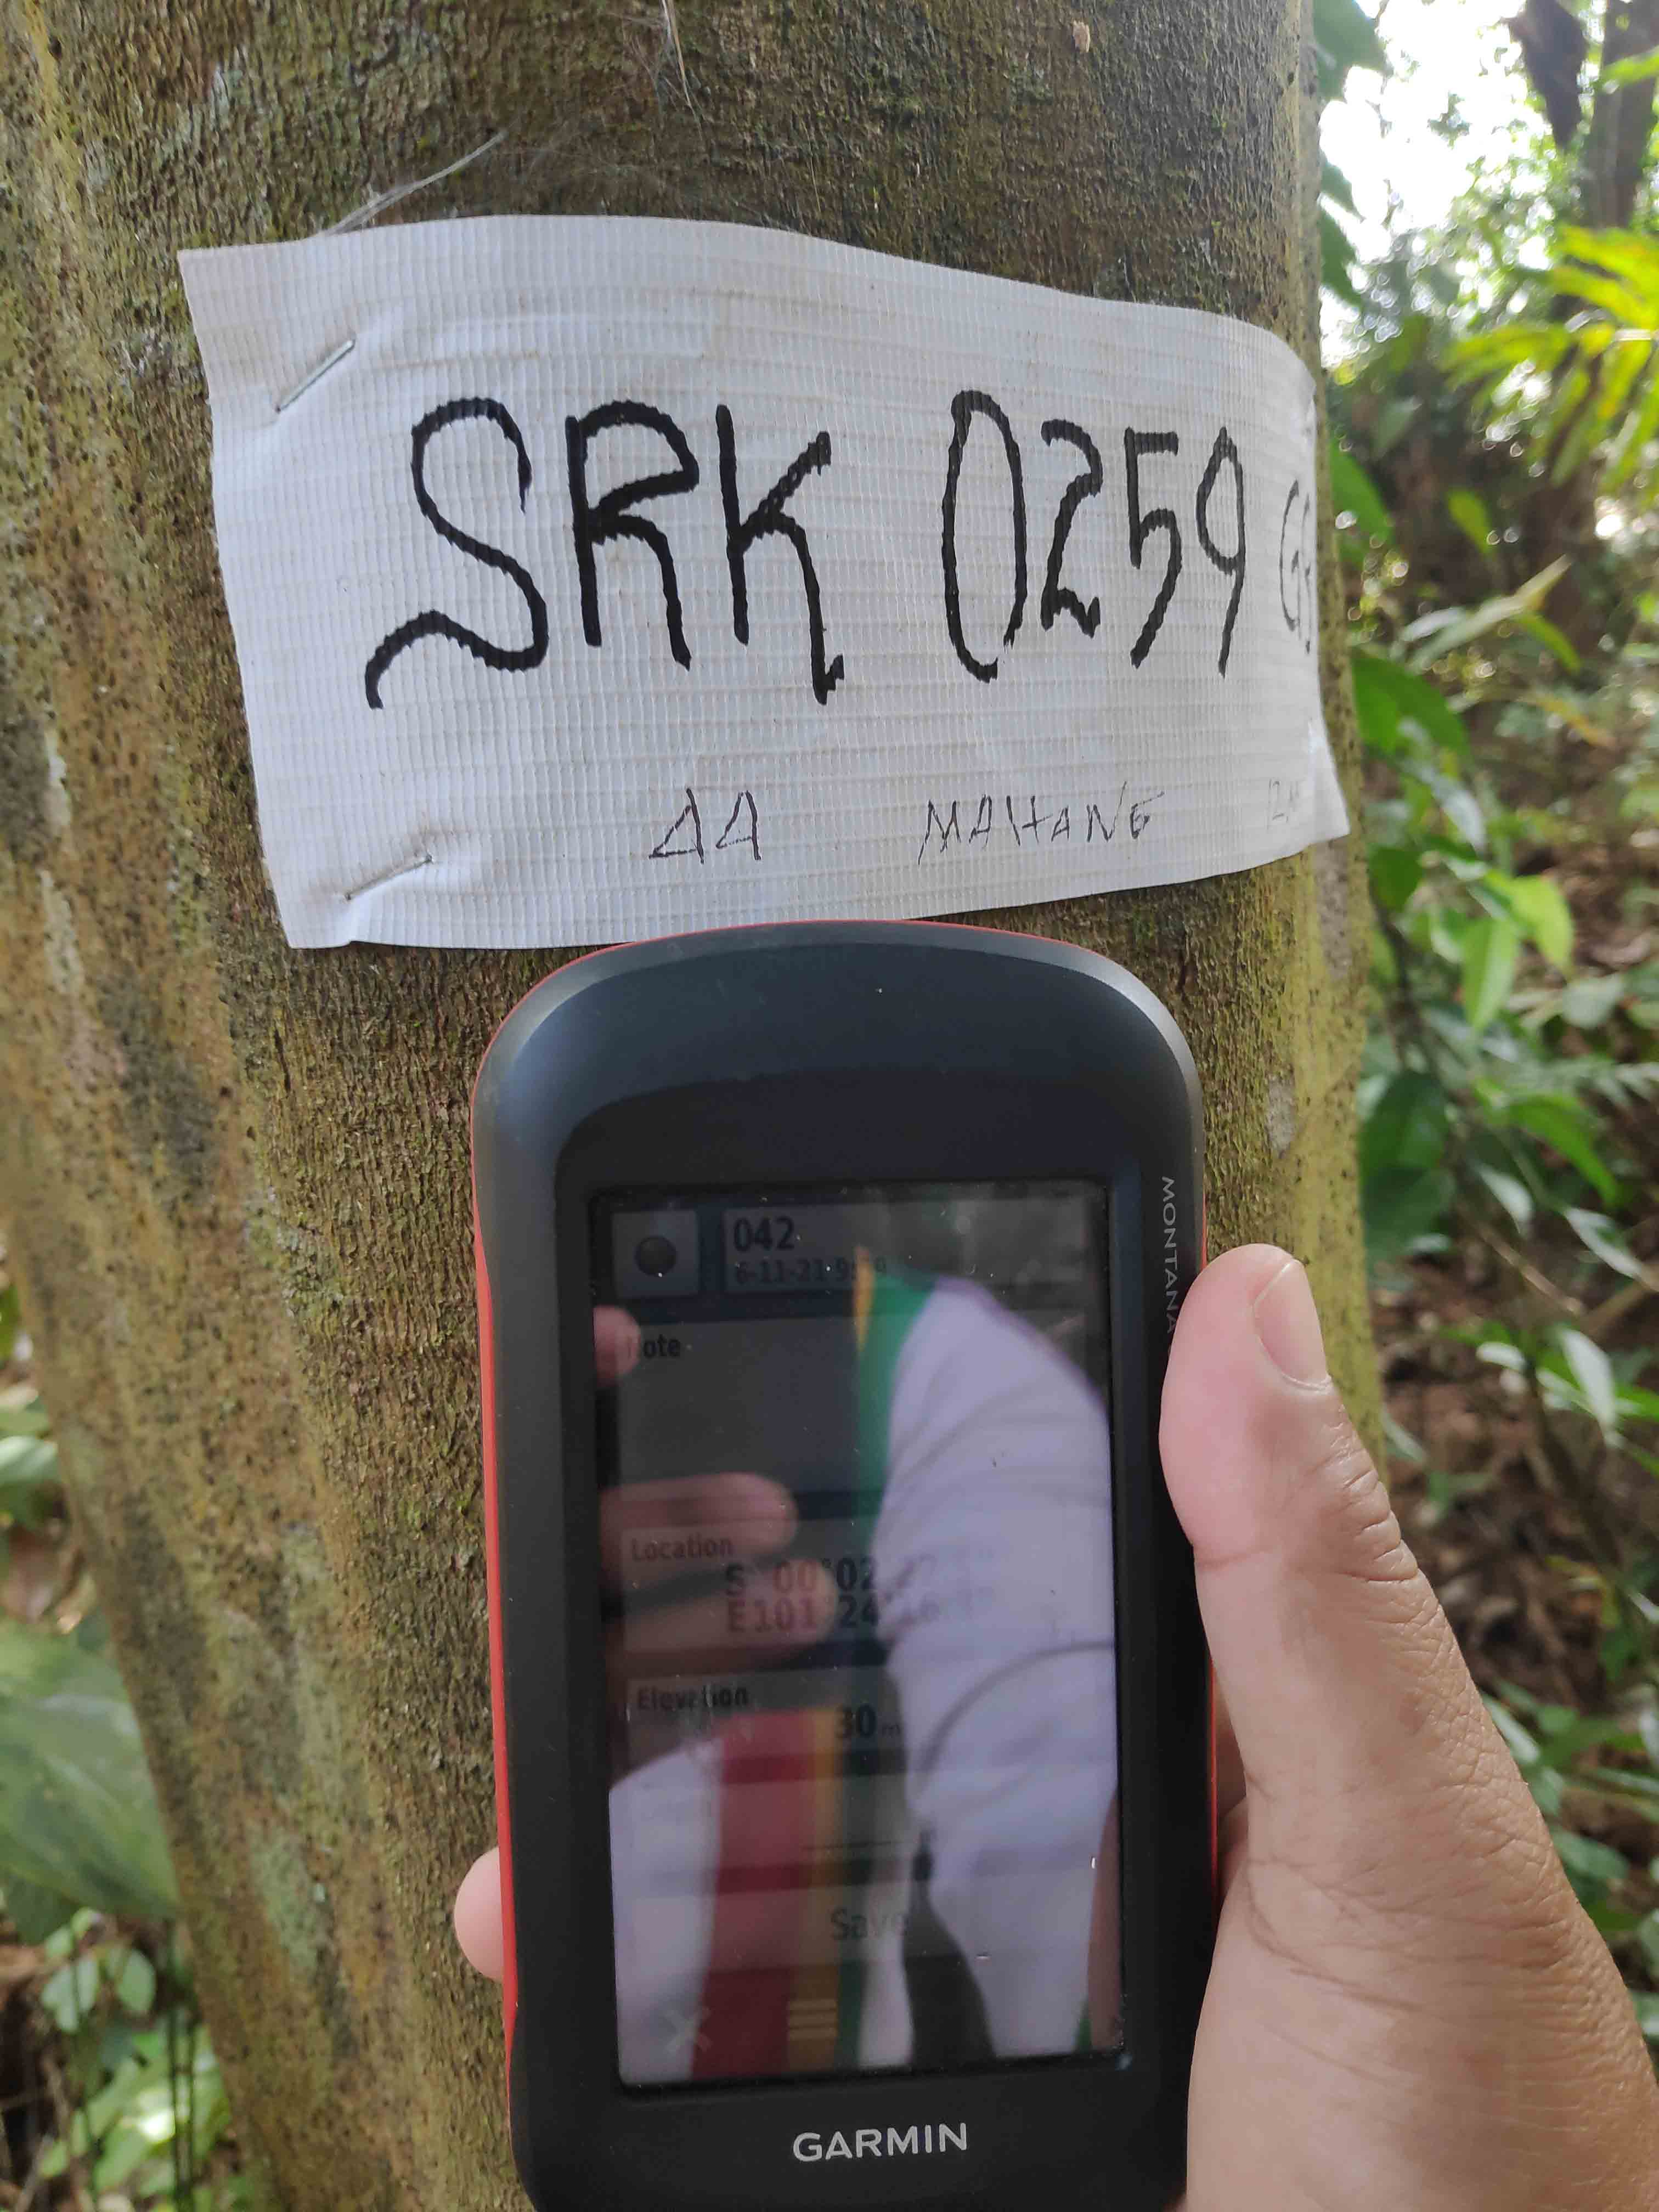 SRK 0259
44 MAHANG
MONTANA
042
6-11-21
Note
Location
S 00°02
E101 24
Elevation
30 m
Save
GARMIN